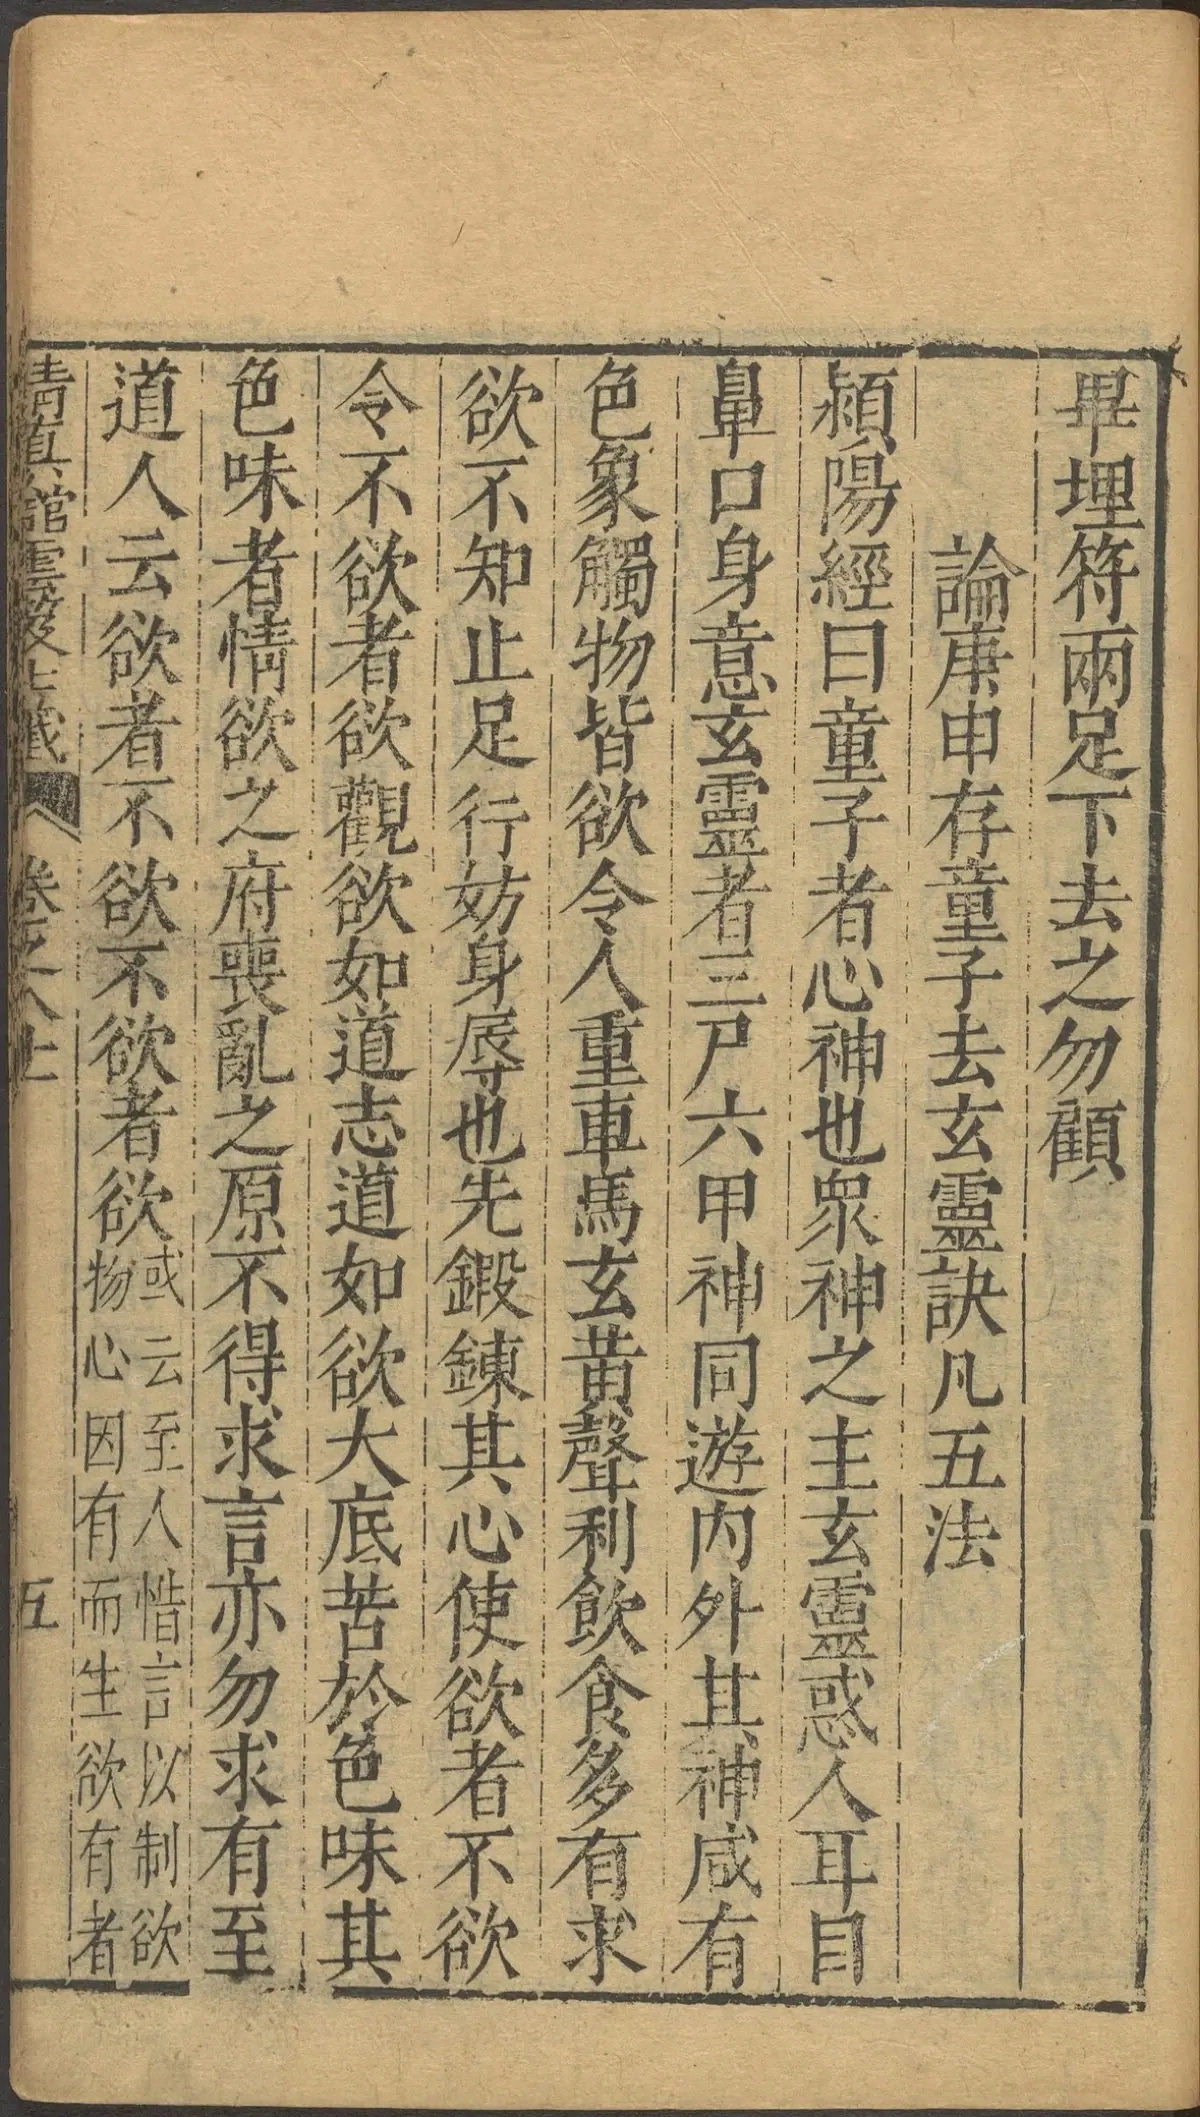 畢埋符兩足下去之勿顧
論庚申存童子去玄靈訣凡五法
潁陽經曰童子者心神也眾神之主玄靈惑人耳目
鼻口身意玄靈者三尸六甲神同遊內外其神咸有
色象觸物皆欲令人重車馬玄黃聲利飲食多有求
欲不知止足行妨身辱也先鍛鍊其心使欲者不欲
令不欲者欲觀欲如道志道如欲大底苦於色味其
色味者情欲之府喪亂之原不得求言亦勿求有至
道人云欲者不欲不欲者欲
或云至人惜言以制欲
物心因有而生欲有者
清真館雲笈七籤
卷之八上
五